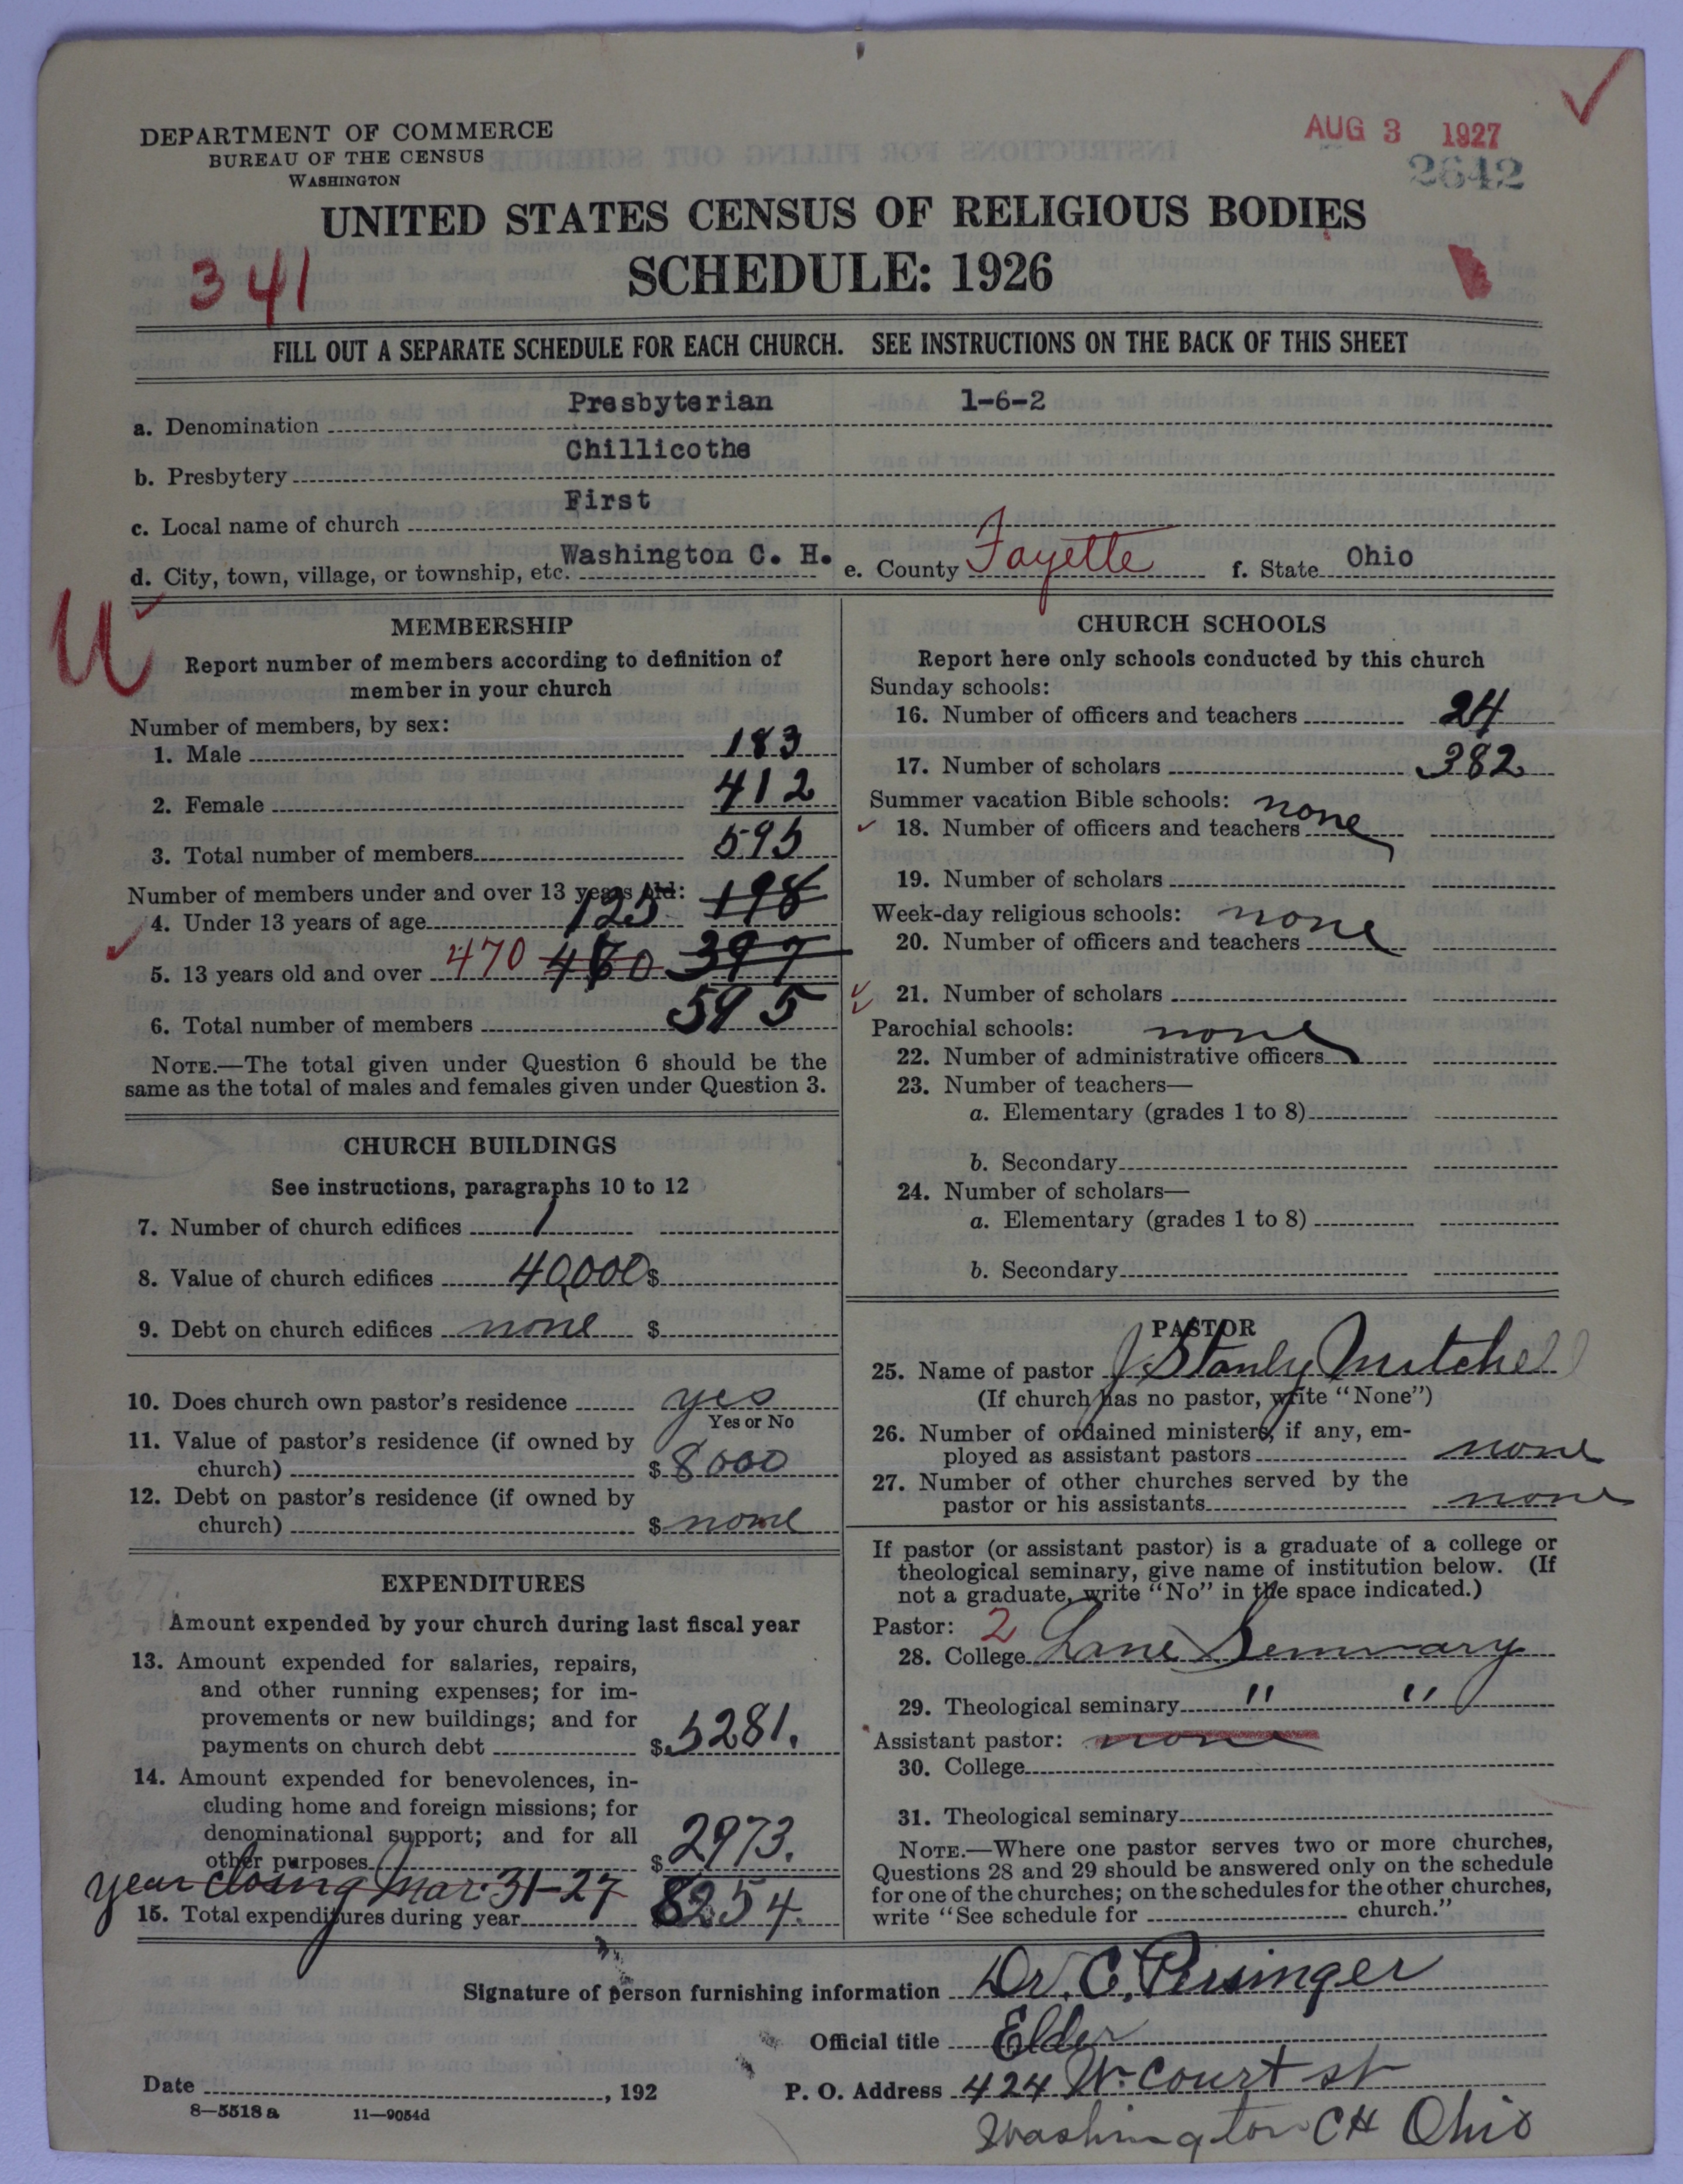 DEPARTMENT OF COMMERCE
BUREAU OF THE CENSUS
WASHINGTON
AUG 3 1927
2642
UNITED STATES CENSUS OF RELIGIOUS BODIES
SCHEDULE: 1926
341
FILL OUT A SEPARATE SCHEDULE FOR EACH CHURCH. SEE INSTRUCTIONS ON THE BACK OF THIS SHEET
a. Denomination Presbyterian 1-6-2
b. Presbytery Chillicothe
c. Local name of church First
d. City, town, village, or township, etc. Washington C. H. e. County Fayette f. State Ohio
U
MEMBERSHIP
Report number of members according to definition of
member in your church
Number of members, by sex:
1. Male 183
2. Female 412
3. Total number of members 595
Number of members under and over 13 years old: 198
4. Under 13 years of age 125
5. 13 years old and over 470 460 397
6. Total number of members 595
NOTE.—The total given under Question 6 should be the
same as the total of males and females given under Question 3.
CHURCH BUILDINGS
See instructions, paragraphs 10 to 12
7. Number of church edifices 1
8. Value of church edifices 40,000 $
9. Debt on church edifices none $
10. Does church own pastor's residence yes
Yes or No
11. Value of pastor's residence (if owned by
church) $ 8000
12. Debt on pastor's residence (if owned by
church) $ none
EXPENDITURES
Amount expended by your church during last fiscal year
13. Amount expended for salaries, repairs,
and other running expenses; for im-
provements or new buildings; and for
payments on church debt $ 5281.
14. Amount expended for benevolences, in-
cluding home and foreign missions; for
denominational support; and for all
other purposes $ 2973.
year closing Mar. 31-27
15. Total expenditures during year $ 8254.
CHURCH SCHOOLS
Report here only schools conducted by this church
Sunday schools:
16. Number of officers and teachers 24
17. Number of scholars 382
Summer vacation Bible schools: none
18. Number of officers and teachers
19. Number of scholars
Week-day religious schools: none
20. Number of officers and teachers
21. Number of scholars
Parochial schools: none
22. Number of administrative officers
23. Number of teachers—
a. Elementary (grades 1 to 8)
b. Secondary
24. Number of scholars—
a. Elementary (grades 1 to 8)
b. Secondary
PASTOR
25. Name of pastor J Stanly Mitchell
(If church has no pastor, write "None")
26. Number of ordained ministers, if any, em-
ployed as assistant pastors none
27. Number of other churches served by the
pastor or his assistants none
If pastor (or assistant pastor) is a graduate of a college or
theological seminary, give name of institution below. (If
not a graduate, write "No" in the space indicated.)
Pastor: 2
28. College Lane Seminary
29. Theological seminary " "
Assistant pastor: none
30. College
31. Theological seminary
NOTE.—Where one pastor serves two or more churches,
Questions 28 and 29 should be answered only on the schedule
for one of the churches; on the schedules for the other churches,
write "See schedule for church."
Signature of person furnishing information Dr. C. Persinger
Official title Elder
Date , 192 P. O. Address 424 W. Court st
8—5518 a 11—9054d
Washington CH Ohio